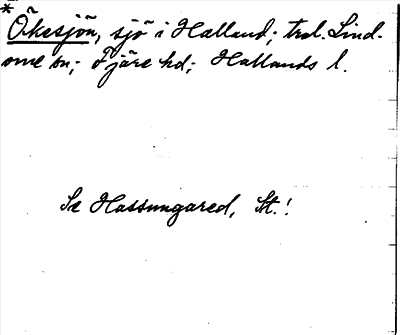 *
Ökesjön, sjö i Halland; trol. Lind-
ome sn; Fjäre hd; Hallands l.
Se Hassungared, St.!